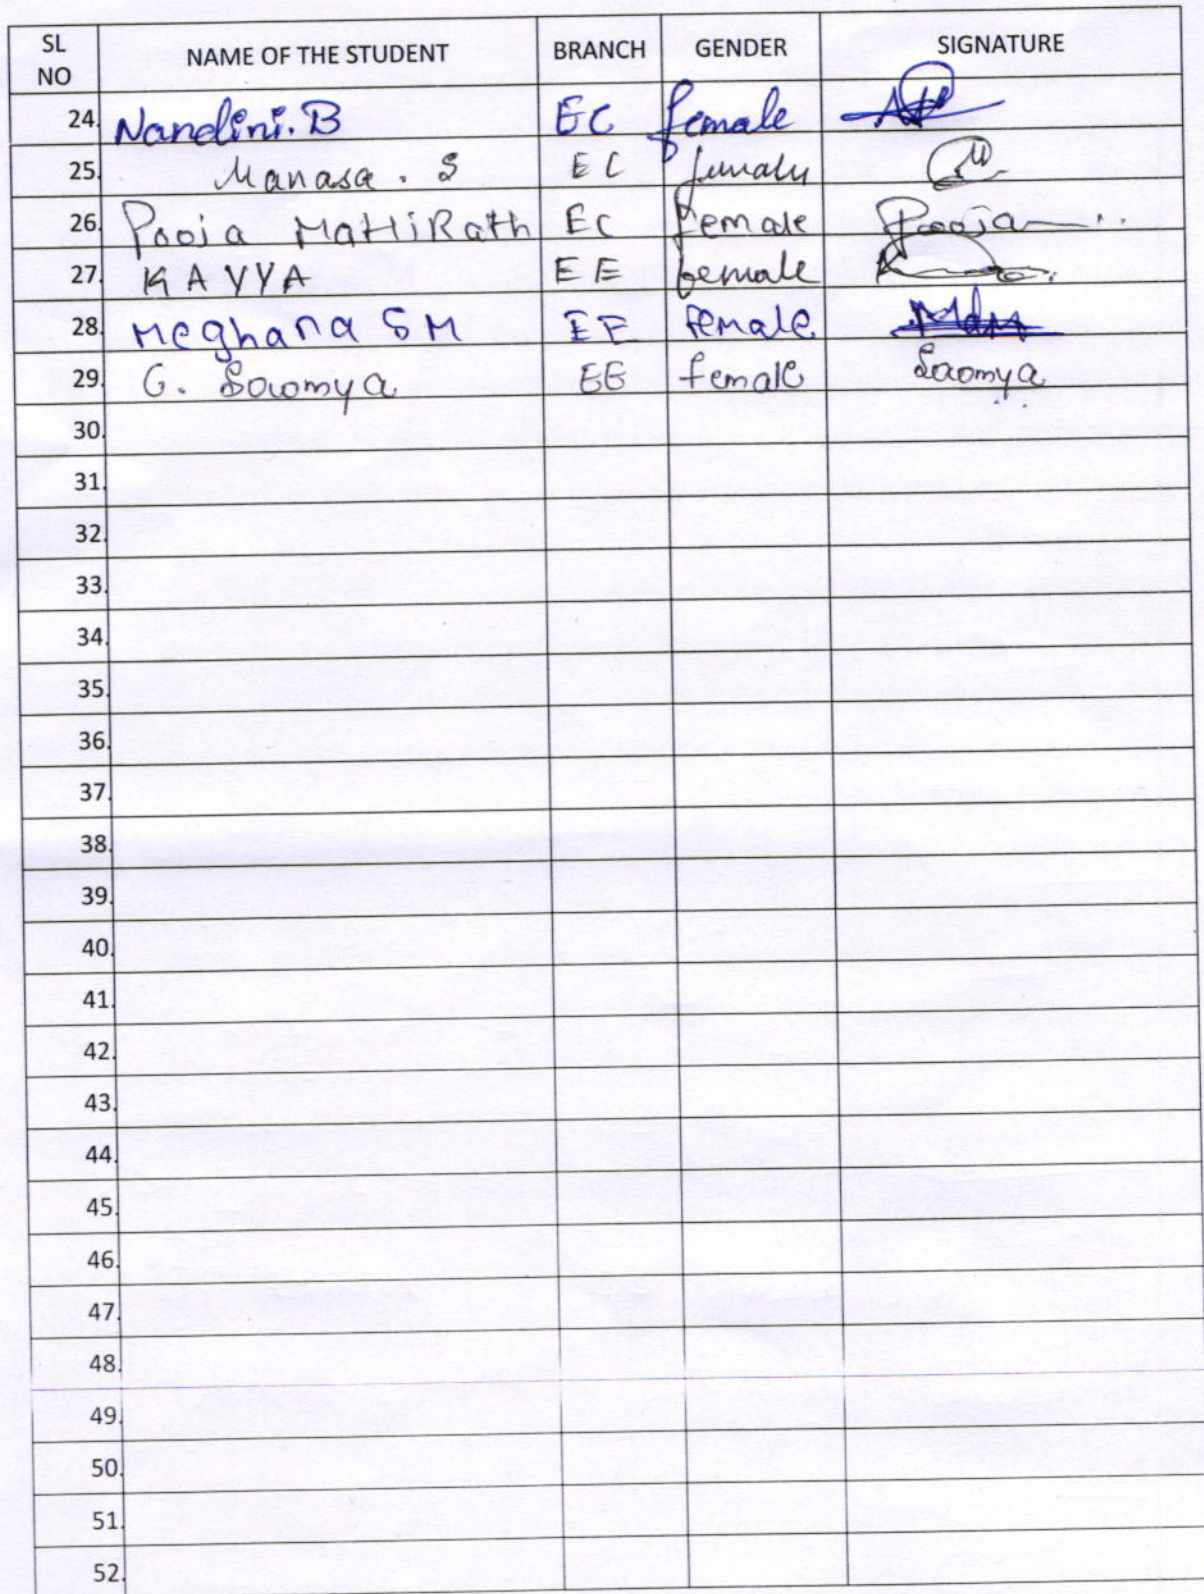 SL NO NAME OF THE STUDENT BRANCH GENDER SIGNATURE
24. Nandini.B EC female
25. Manasa. S EC female
26. Pooja MaHiRath EC female Pooja
27. KAVYA EE female
28. Meghana SM EE female
29. G. Sowmya EE female Sowmya
30.
31.
32.
33.
34.
35.
36.
37.
38.
39.
40.
41.
42.
43.
44.
45.
46.
47.
48.
49.
50.
51.
52.